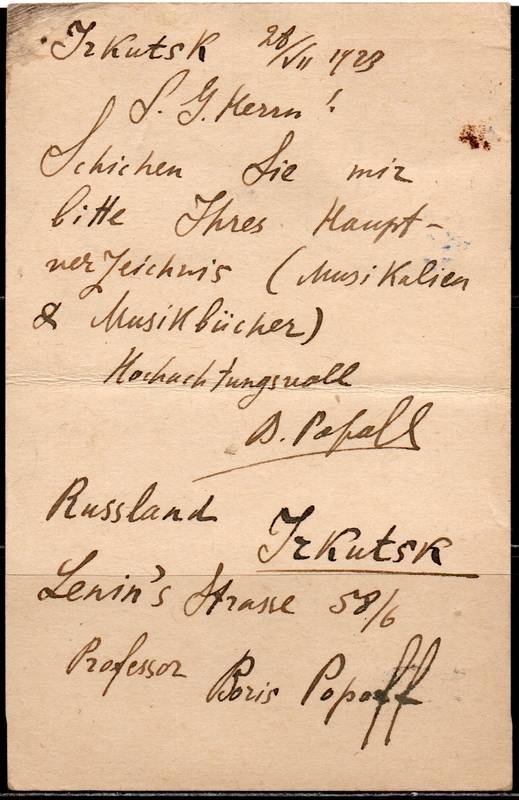 Irkutsk 28/VII 1923
S. G. Herrn!
Schicken Sie mir
bitte Ihres Haupt-
verzeichnis (Musikalien
& Musikbücher)
Hochachtungsvoll
B. Popoff
Russland Irkutsk
Lenin's Strasse 58/6
Professor Boris Popoff